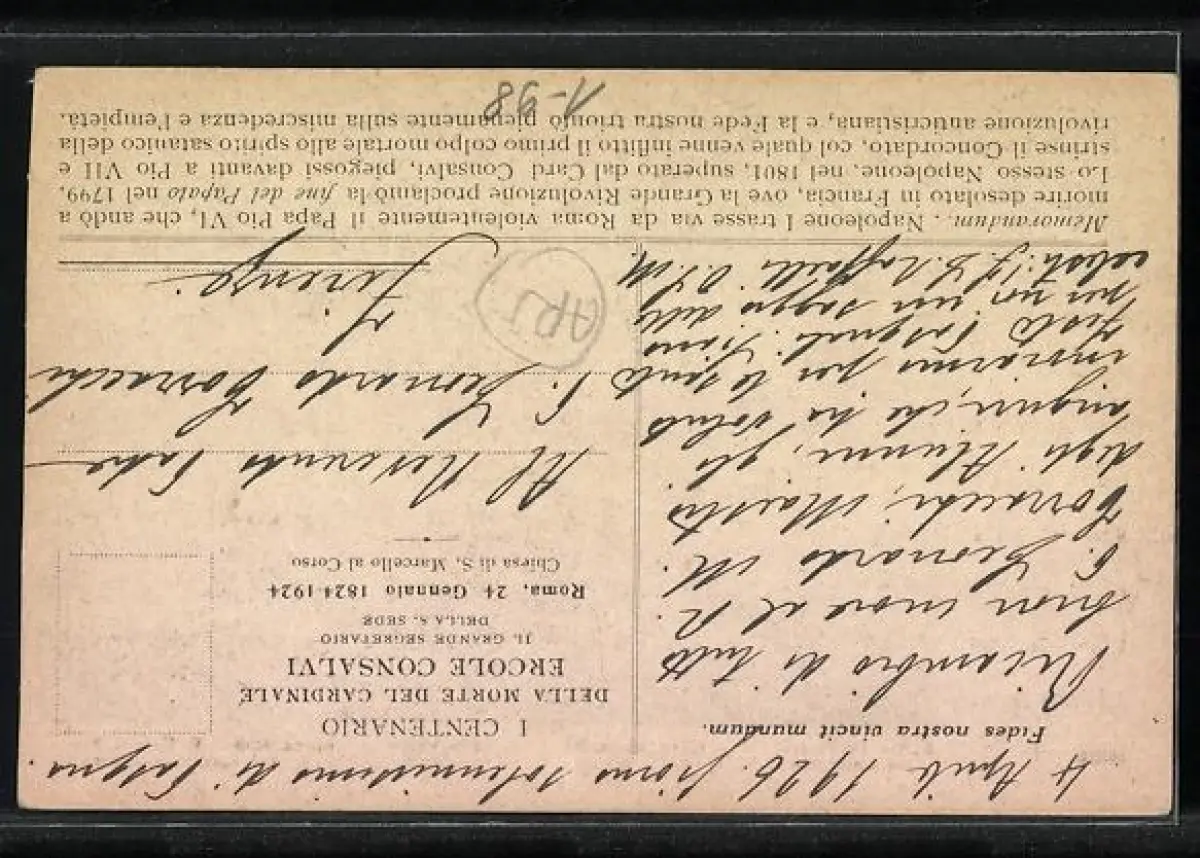 4 Aprile 1926. giorno solennissimo di Pasqua.
Fides nostra vincit mundum.
Ricambio di tutto
buon cuore al R.
P. Leonardo M.
Torracchi, Maestro
degli Alunni, gli
auguri, che ha voluto
inviarmi per le sante
Feste Pasquali. Siano
per noi un saggio delle
celesti.
I CENTENARIO
DELLA MORTE DEL CARDINALE
ERCOLE CONSALVI
IL GRANDE SEGRETARIO
DELLA S. SEDE
Roma, 24 Gennaio 1824-1924
Chiesa di S. Marcello al Corso
Al Reverendo Padre
P. Leonardo Torracchi
Firenze.
ARS
Memorandum. . Napoleone I trasse via da Roma violentemente il Papa Pio VI, che andò a
morire desolato in Francia, ove la Grande Rivoluzione proclamò la fine del Papato nel 1799.
Lo stesso Napoleone, nel 1801, superato dal Card. Consalvi, piegossi davanti a Pio VII e
strinse il Concordato, col quale venne inflitto il primo colpo mortale allo spirito satanico della
rivoluzione anticristiana, e la Fede nostra trionfò pienamente sulla miscredenza e l'empietà.
1-98